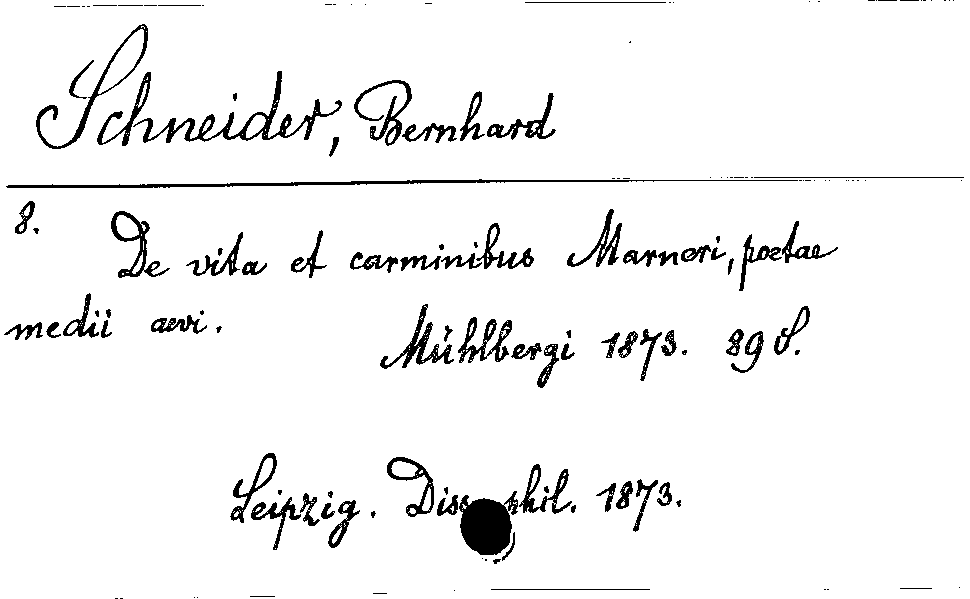 Schneider, Bernhard
8. De vita et carminibus Marneri, poetae
medii aevi.
Mühlbergi 1873. 89 S.
Leipzig. Diss. phil. 1873.